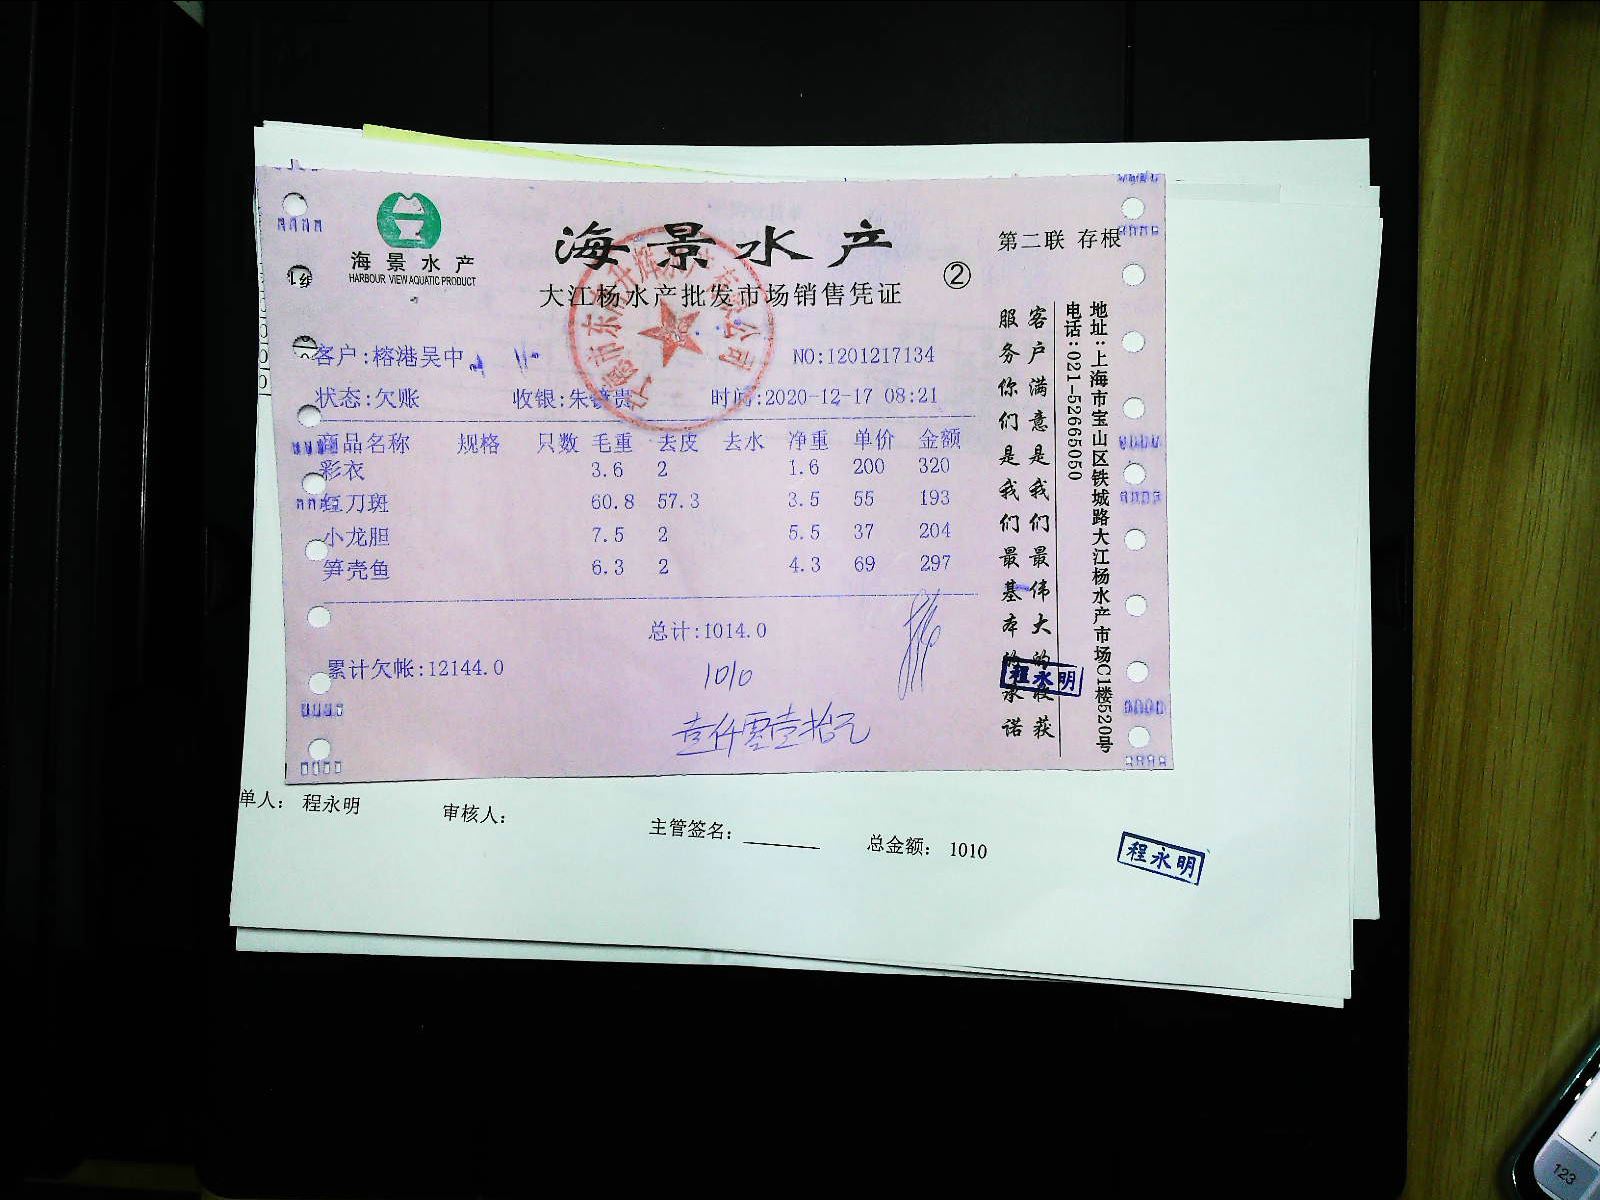 海景水产
HARBOUR VIEW AQUATIC PRODUCT
海景水产
大江杨水产批发市场销售凭证
②
第二联 存根
客户:榕港吴中
NO:1201217134
状态:欠账 收银:朱 贵 时间:2020-12-17 08:21
商品名称 规格 只数 毛重 去皮 去水 净重 单价 金额
彩衣 3.6 2 1.6 200 320
红刀斑 60.8 57.3 3.5 55 193
小龙胆 7.5 2 5.5 37 204
笋壳鱼 6.3 2 4.3 69 297
总计:1014.0
累计欠帐:12144.0
1010
壹仟零壹拾元
客户满意是我们最伟大的收获
服务你们是我们最基本的承诺
地址:上海市宝山区铁城路大江杨水产市场C1楼520号
电话:021-52665050
程永明
单人: 程永明
审核人:
主管签名:
总金额: 1010
程永明
123